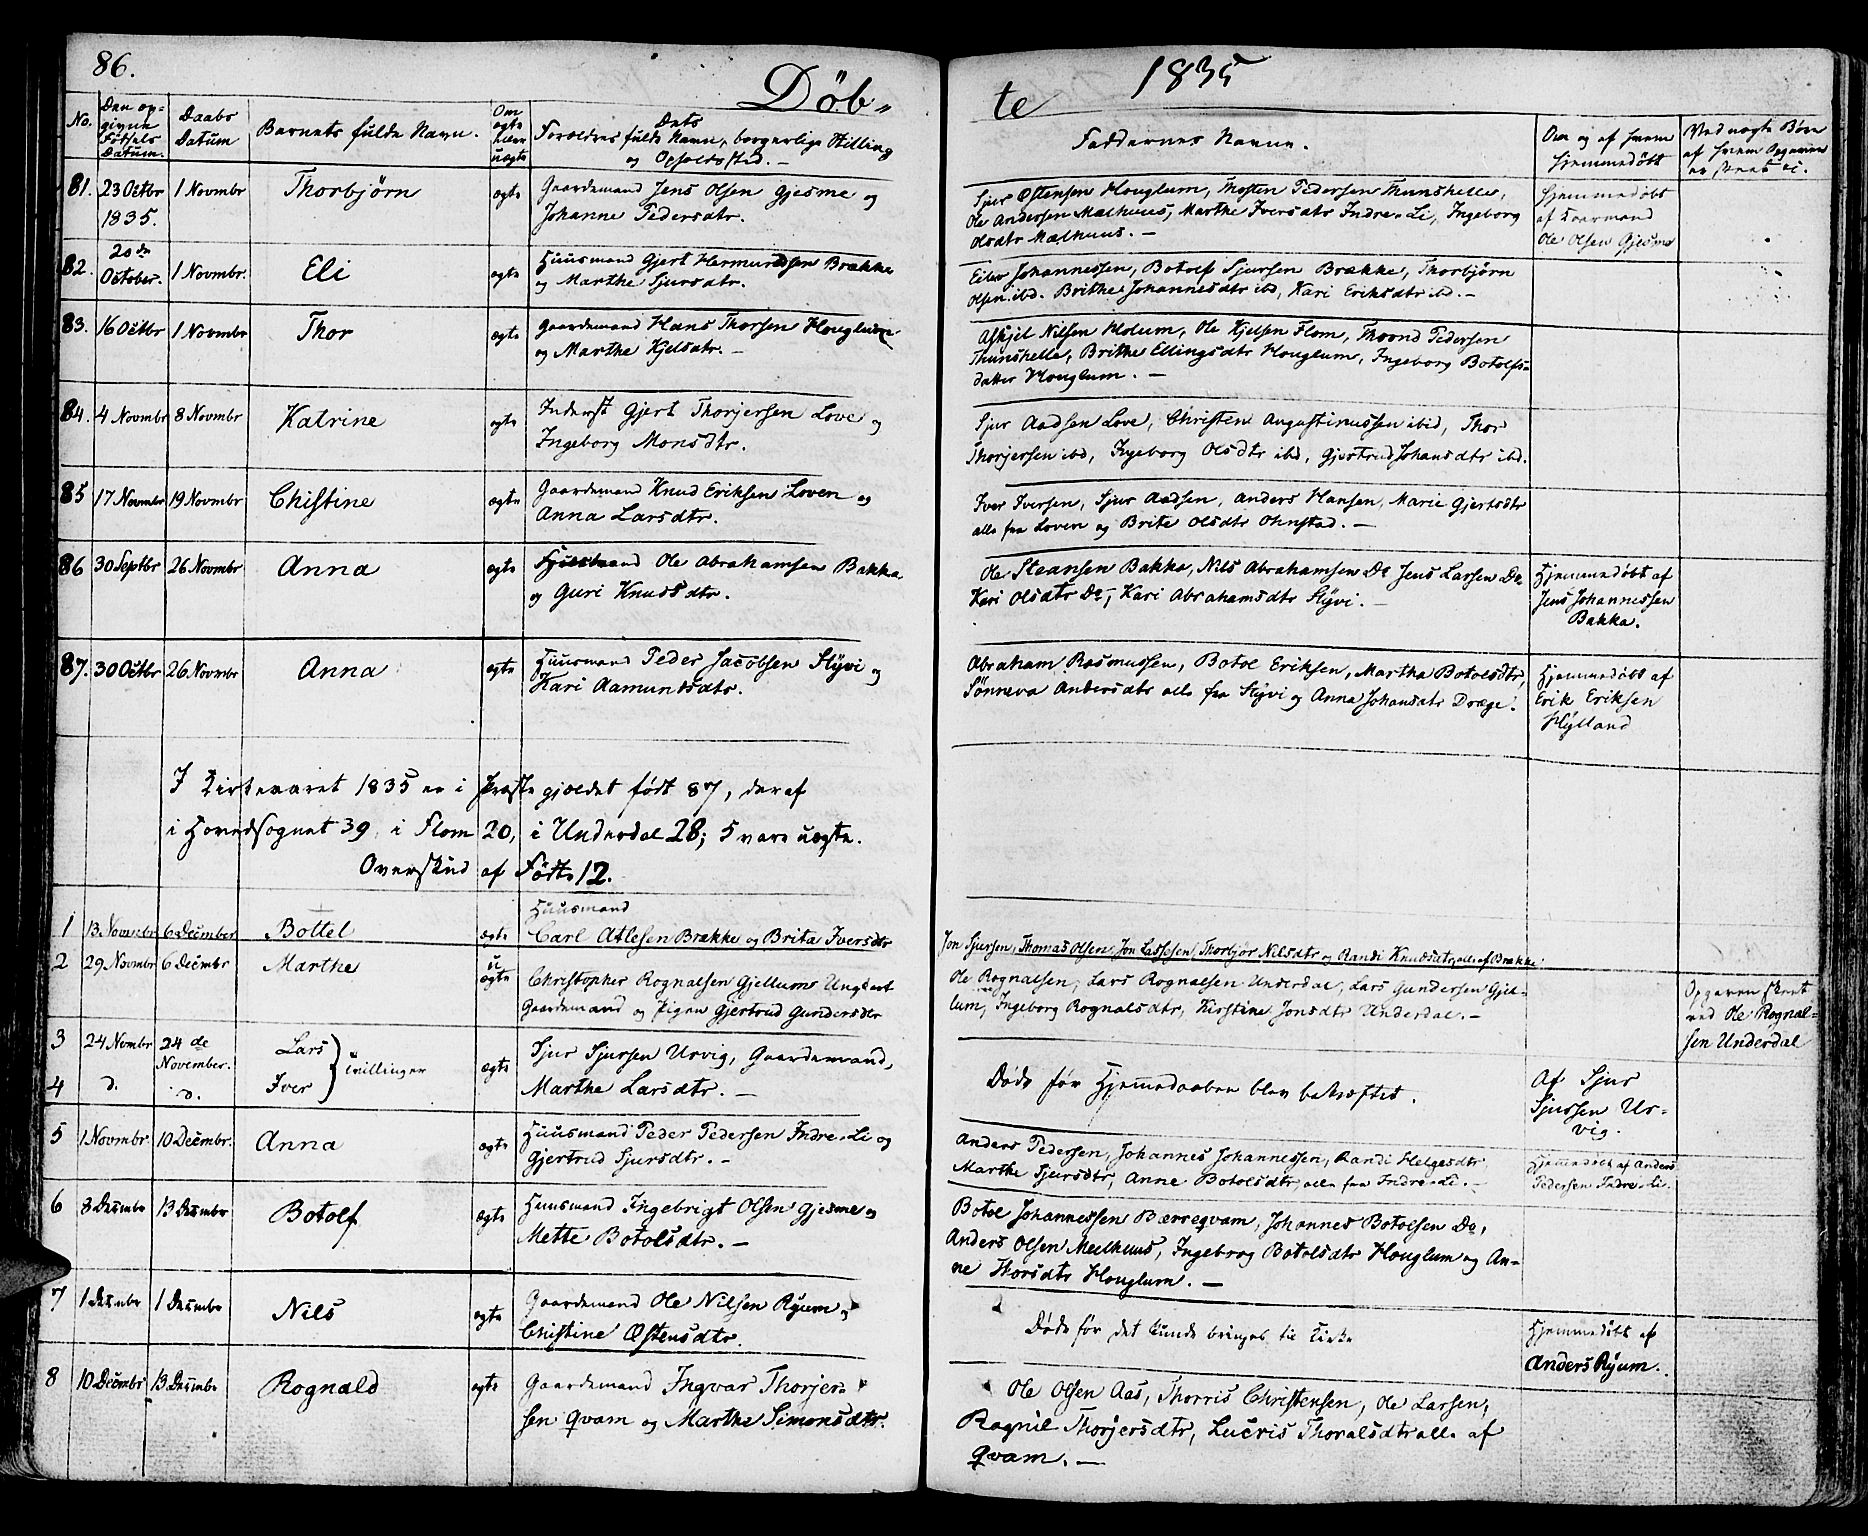 86.
Døb-
te
1835
No.
Den op-
givne
Fødsels
Datum.
Daabs
Datum
Barnets fulde Navn.
Om
ægte
eller
uægte
Dets
Forældres fulde Navn, borgerlige Stilling
og Opholdssted. —
Faddernes Navne.
Om og af hvem
hjemmedøbt
Ved uægte Børn
af hvem Opgaven
er skeet &c.
81. 23 Octbr 1 Novmbr Thorbjørn ægte Gaardemand Jens Olsen Gjesme og
1835. Johanne Pedersdtr.
Sjur Østensen Houglum, Thosten Pedersen Thunshelle,
Ole Andersen Mælhuus, Marthe Iversdtr Indre-Li, Ingeborg
Olsdtr Mælhuus. —
Hjemmedøbt
af Gaarmand
Ole Olsen Gjesme
82. 20de October. 1 Novmbr. Eli ægte Huusmand Gjert Hermundsen Brække
og Marthe Sjursdtr.
Eilev Johannessen, Botolf Sjursen Brække, Thorbjørn
Olsen ibd. Brithe Johannesdtr ibd, Kari Eriksdtr ibd. —
83. 16 Octbr 1 Novmbr Thor ægte Gaardemand Hans Thorsen Houglum
og Marthe Kjelsdtr. —
Askjel Nilsen Holum, Ole Kjelsen Flom, Thrond Pedersen
Thunshelle, Brithe Ellingsdtr Houglum, Ingeborg Botolfs-
datter Houglum. —
84. 4 Novmbr 8 Novmbr Katrine ægte Inderst Gjert Thorjersen Love og
Ingeborg Monsdtr.
Sjur Aadsen Love, Christen Augustinussen ibid, Thor
Thorjersen ibd, Ingeborg Olsdtr ibd, Gjertrud Johansdtr ibd.
85 17 Novmbr 19 Novmbr Christine ægte Gaardemand Knud Eriksen Loven og
Anna Larsdtr.
Iver Iversen, Sjur Aadsen, Anders Hansen, Marie Gjertsdtr
alle fra Loven og Brite Olsdtr Ohnstad. —
86 30 Septbr 26 Novmbr Anna ægte Huusmand Ole Abrahamsen Bakka
og Guri Knudsdtr.
Ole Steansen Bakka, Nils Abrahamsen Do Jens Larsen Do
Kari Olsdtr Do, Kari Abrahamsdtr Styvi. —
Hjemmedøbt af
Jens Johannessen
Bakka.
87. 30 Octbr 26 Novmbr Anna ægte Huusmand Peder Jacobsen Styvi og
Kari Aamundsdtr.
Abraham Rasmussen, Botol Eriksen, Martha Botolsdtr,
Sønneva Andersdtr alle fra Styvi og Anna Johansdtr Dræge.
Hjemmedøbt af
Erik Eriksen
Hylland
I Kirkeaaret 1835 er i Præstegjeldet født 87, deraf
i Hovedsognet 39, i Flom 20, i Underdal 28; 5 vare uægte.
Overskud af Fødte 12.
1 13 Novembr 6 Decmber Bottel ægte Huusmand
Carl Atlesen Brække og Brita Iversdtr
Jon Sjursen, Thomas Olsen, Jon Lassesen, Thorbjør Nilsdtr og Randi Knudsdtr, alle af Brække
2 29 Novmbr 6 Decmbr Marthe uægte Christopher Rognalsen Gjellum Ungkarl
Gaardemand og Pigen Gjertrud Gundersdtr
Ole Rognalsen, Lars Rognalsen Underdal, Lars Gundersen Gjel-
lum, Ingeborg Rognalsdtr, Kirstine Jonsdtr Underdal. —
Opgaven skeet
ved Ole Rognal-
sen Underdal
3 24 Nombr 24de November. Lars
4 d. d. Iver
tvillinger
ægte Sjur Sjursen Urvig, Gaardemand,
Marthe Larsdtr. —
Døde før Hjemedaaben blev bekræftet.
Af Sjur
Sjursen Ur-
vig.
5 1 Novmbr 10 Decmbr. Anna ægte Huusmand Peder Pedersen Indre-Li og
Gjertrud Sjursdtr. —
Anders Pedersen, Johannes Johannessen, Randi Helgesdtr
Marthe Sjursdtr, Anne Botolsdtr, alle fra Indre-Li. —
Hjemmedøbt af Anders
Pedersen Indre-Li.
6 8 Decmbr 13 Decmbr Botolf ægte Huusmand Ingebrigt Olsen Gjesme og
Mette Botolsdtr. —
Botol Johannessen Bærreqvam, Johannes Botolsen Do,
Anders Olsen Meelhuus, Ingeborg Botolsdtr Houglum og An-
ne Thorsdtr Houglum. —
7 1 Decmbr 1 Decmbr Nils ægte Gaardemand Ole Nilsen Ryum og
Christine Østensdtr.
Døde før det kunde bringes til Kirke
Hjemmedøbt af
Anders Ryum.
8 10 Decmbr 13 Decmbr Rognald ægte Gaardemand Ingvar Thorjer-
sen Qvam og Marthe Simonsdtr.
Ole Olsen Aas, Thorris Christensen, Ole Larsen,
Ragnil Thorjersdtr, Lucris Thoralsdtr alle af
Qvam. —